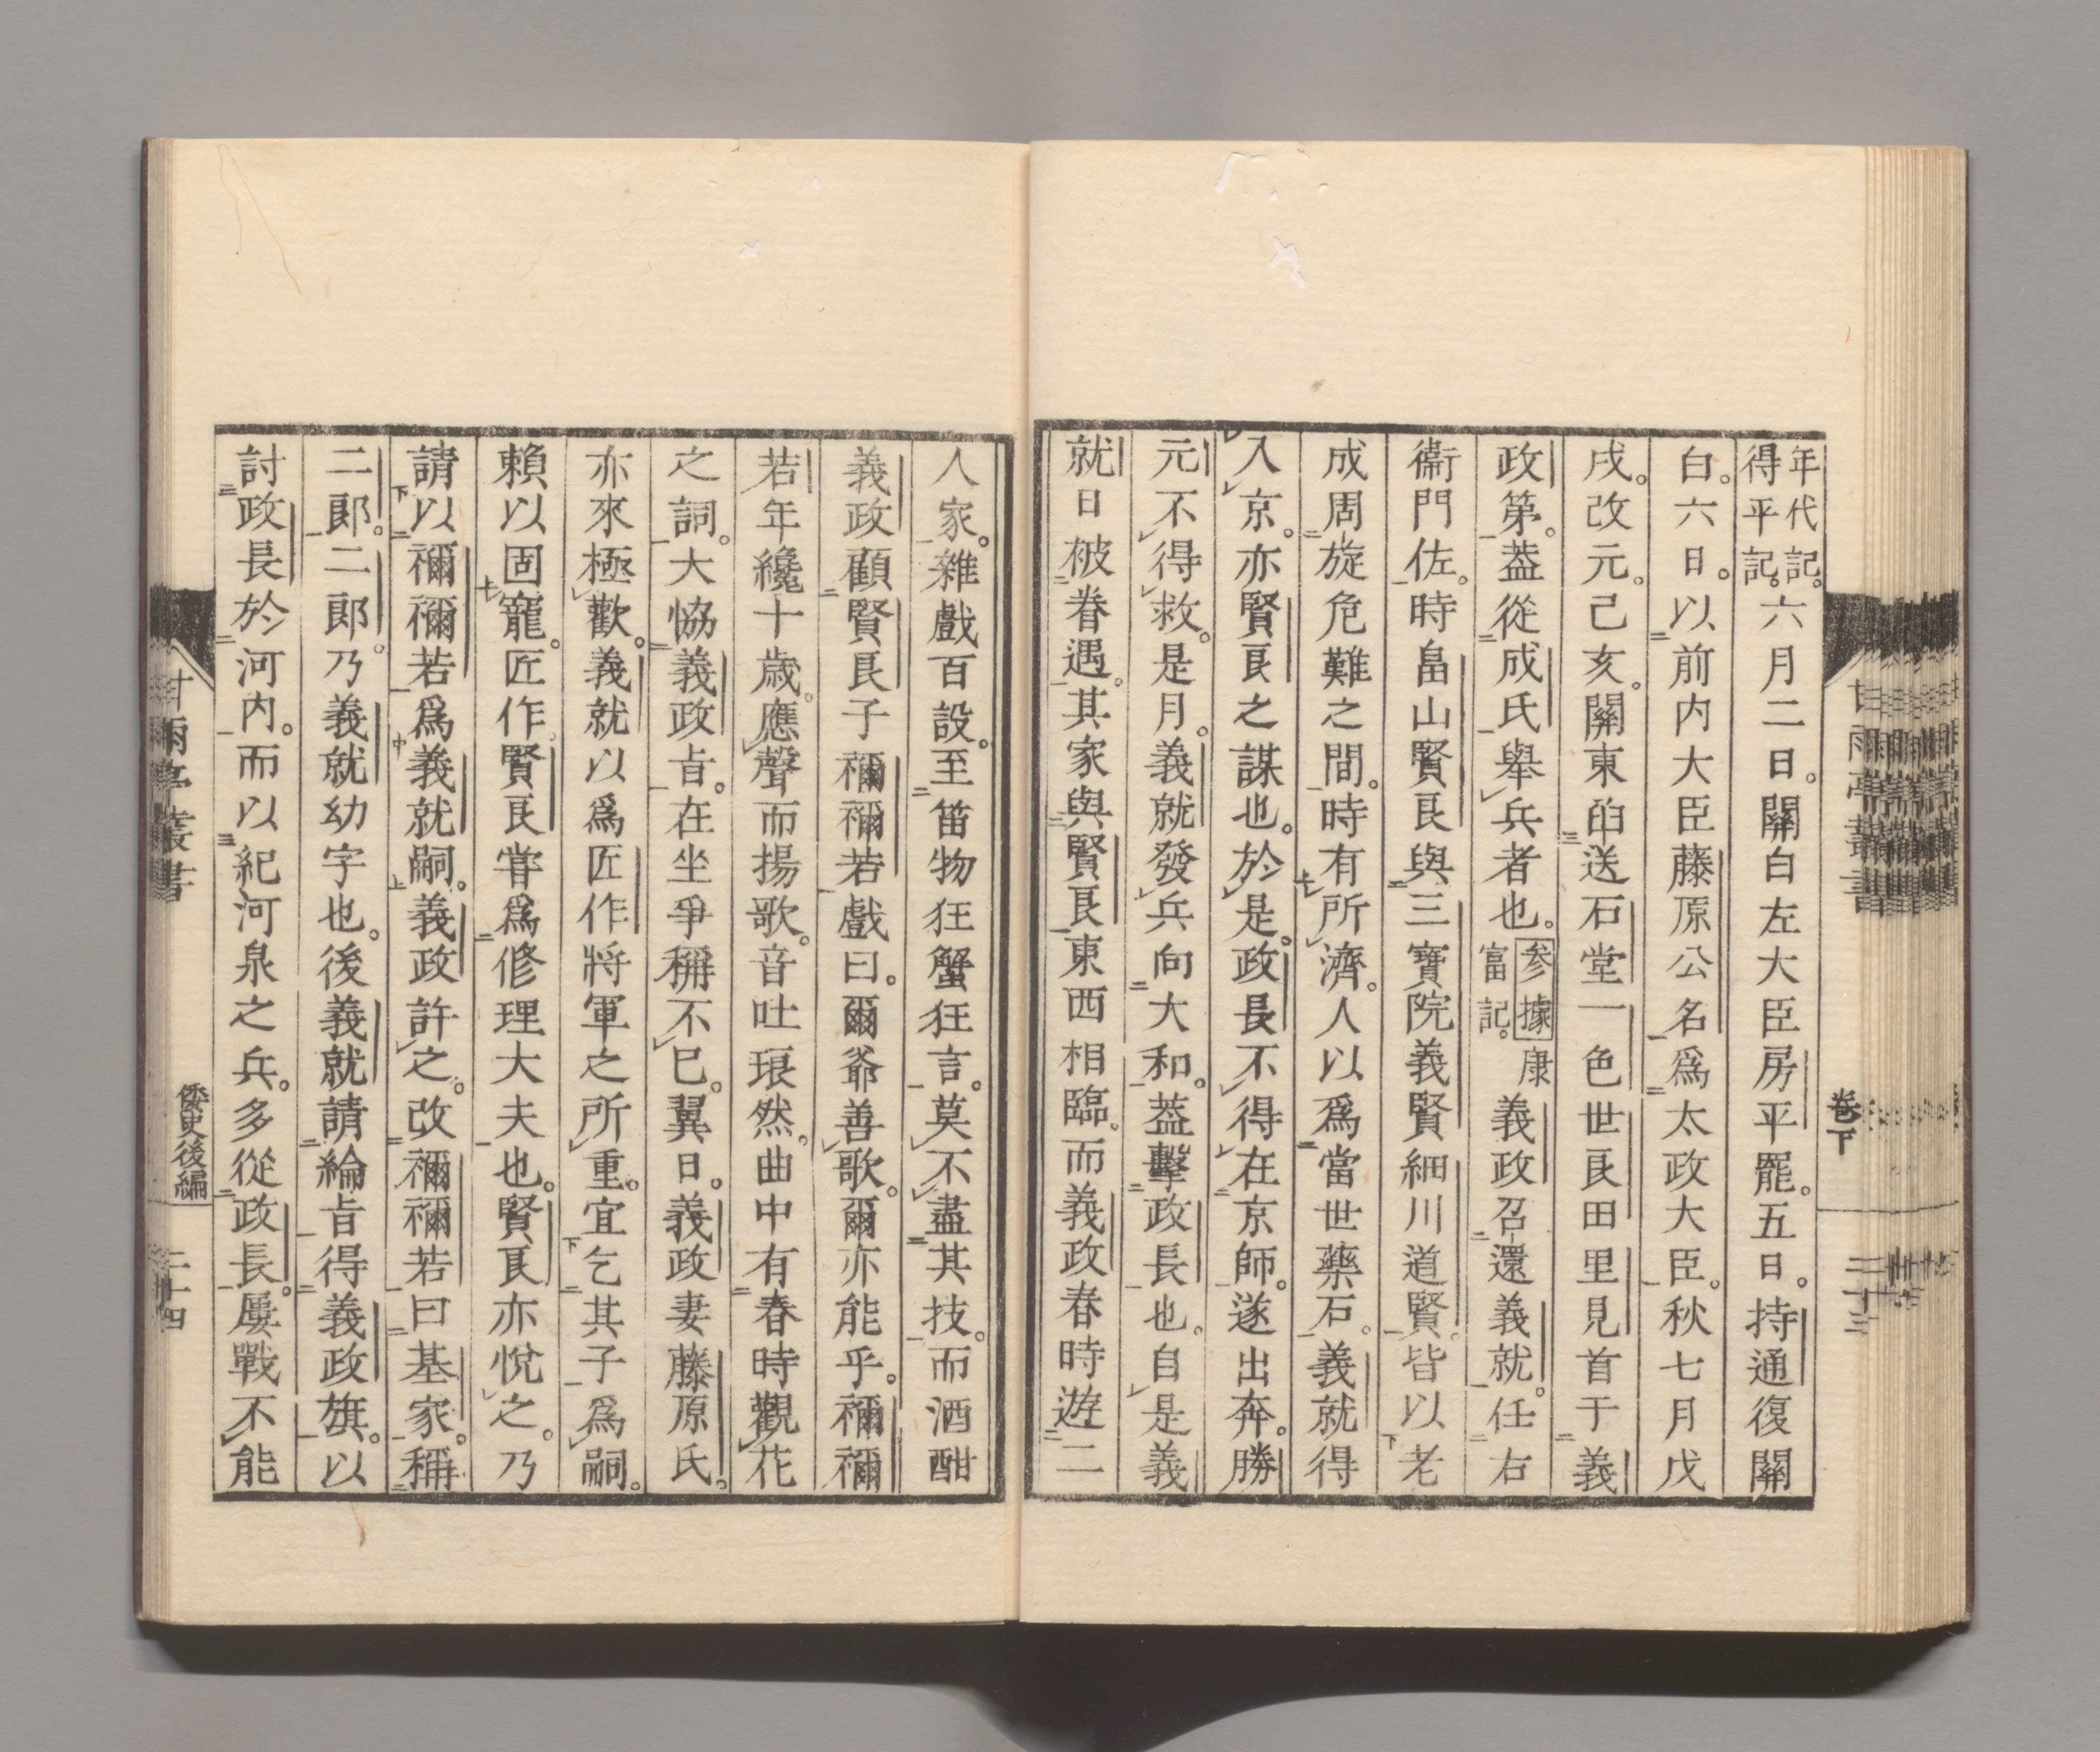 年代記。得平記。六月二日。關白左大臣房平罷。五日。持通復關
白。六日。以前内大臣藤原公名爲太政大臣。秋七月戊
戌。改元。己亥。關東䣛送石堂一色世良田里見首于義
政第。葢從成氏舉兵者也。參據康富記。義政召還義就。任右
衞門佐。時畠山賢良與三寶院義賢細川道賢。皆以老
成周旋危難之間。時有所濟。人以爲當世藥石。義就得
入京。亦賢良之謀也。於是。政長不得在京師。遂出奔。勝
元不得救。是月。義就發兵向大和。葢擊政長也。自是義
就日被眷遇。其家與賢良東西相臨。而義政春時遊二
人家。雜戲百設。至笛物狂蟹狂言。莫不盡其技。而酒酣
義政顧賢良子禰禰若戲曰。爾爺善歌。爾亦能乎。禰禰
若年纔十歲。應聲而揚歌。音吐琅然。曲中有春時觀花
之詞。大恊義政旨。在坐爭稱不已。翼日。義政妻藤原氏
亦來極歡。義就以爲匠作將軍之所重。宜乞其子爲嗣。
賴以固寵。匠作。賢良甞爲修理大夫也。賢良亦悅之。乃
請以禰禰若爲義就嗣。義政許之。改禰禰若曰基家。稱
二郎。二郎。乃義就幼字也。後義就請綸旨得義政旗。以
討政長於河内。而以紀河泉之兵。多從政長。屢戰不能
甘雨亭叢書
卷下
二十三
甘雨亭叢書
倭史後編
二十四